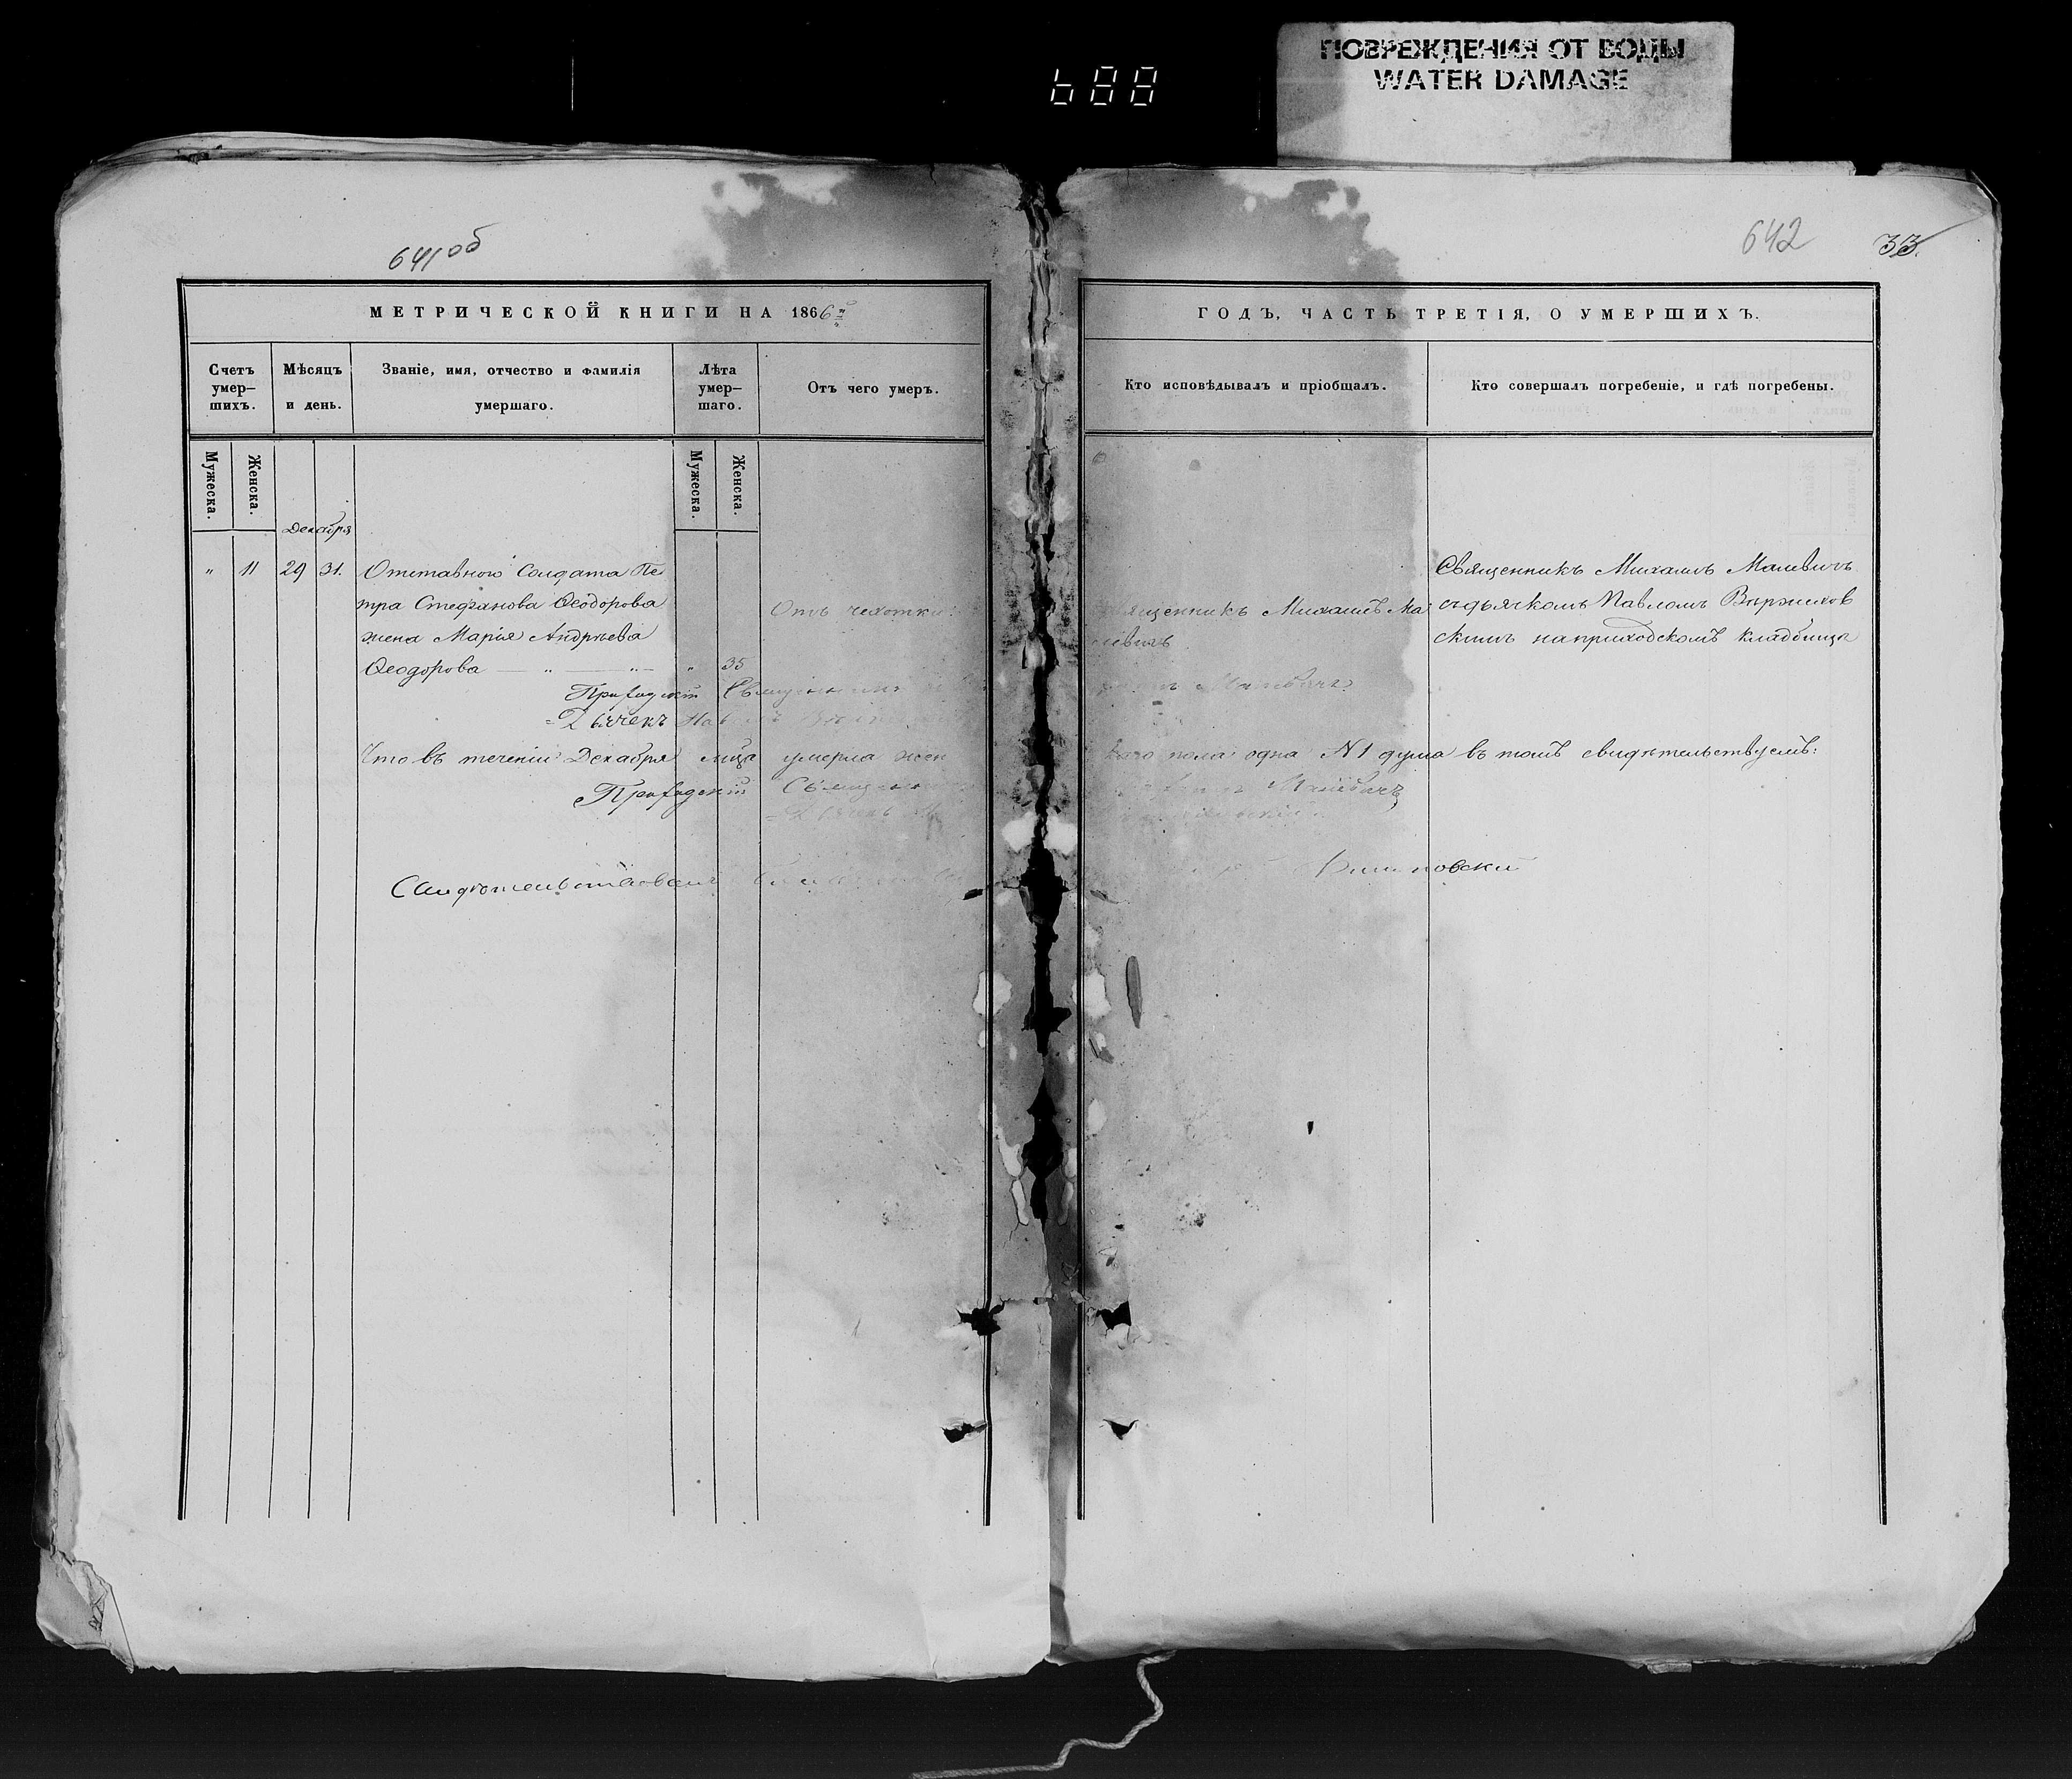 ПОВРЕЖДЕНИЯ ОТ ВОДЫ
WATER DAMAGE
688
641об
642 33.
МЕТРИЧЕСКОЙ КНИГИ НА 1866й
ГОДЪ, ЧАСТЬ ТРЕТІЯ, О УМЕРШИХЪ.
Счетъ умер–шихъ.
Мѣсяцъ и день.
Званіе, имя, отчество и фамилія умершаго.
Лѣта умер–шаго.
Отъ чего умеръ.
Кто исповѣдывалъ и пріобщалъ.
Кто совершалъ погребеніе, и гдѣ погребены.
Мужеска.
Женска.
Мужеска.
Женска.
Декабря
" 11 29 31. Отставного Солдата Пе
тра Стефанова Ѳеодорова
жена Марія Андрѣева
Ѳеодорова — " — " — " 35
Отъ чехотки.
Священникъ Михаилъ Ма
левичъ
Священникъ Михаилъ Малевичъ
съ дьячкомъ Павломъ
скимъ на приходскомъ кладбищѣ
Приходскій Священникъ Малевичъ
Дьячекъ Павелъ
Что въ теченіи Декабря мѣца умерла жен
каго пола одна №1 душа въ томъ свидѣтельствуемъ:
Приходскій Священ Малевичъ
Дьячекъ
Свидѣтельствовалъ